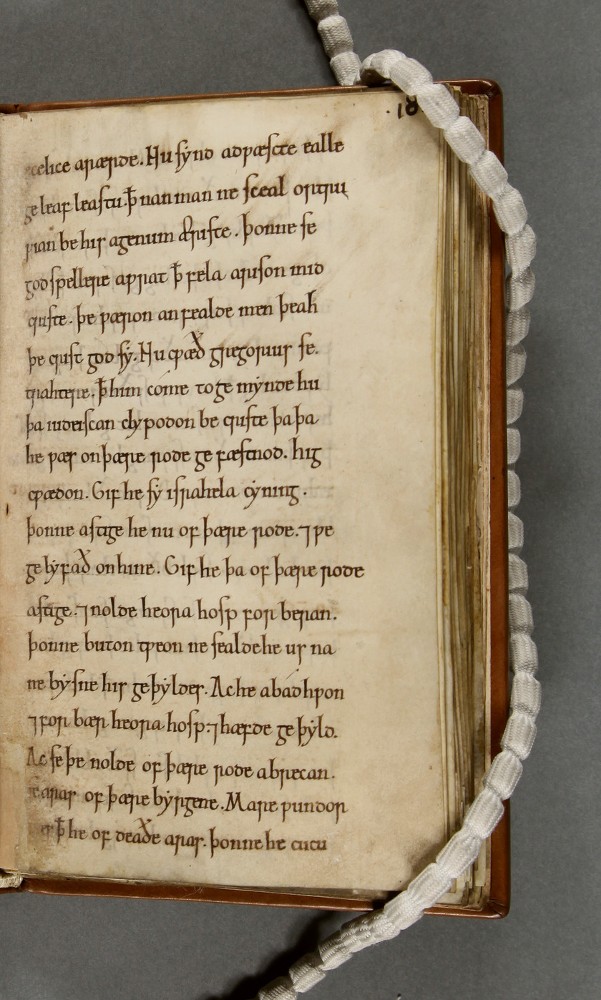 ·18
celice arærde. Hu synd adwæscte ealle
geleafleastu. ꝥ nan man ne sceal ortruw
wian be his agenum æriste. þonne se
godspellere awrat ꝥ fela arison mid
criste. þe wæron anfealde men þeah
þe crist god sẏ. Hu cwæð gregorius se.
trahtere. ꝥ him come to gemẏnde hu
þa iudeiscan clypodon be criste þa þa
he wæs on þære rode gefæstnod. hig
cwædon. Gif he sẏ israhela cẏning.
þonne astige he nu of þære rode. ⁊ we
gelẏfað on hine. Gif he þa of þære rode
astige. ⁊ nolde heora hosp forberan.
þonne buton tweon ne sealde he us na
ne bẏsne his geþẏldes. Ac he abad hwon
⁊ forbær heora hosp: ⁊ hæfde geþẏld.
Ac se þe nolde of þære rode abrecan.
se aras of þære bẏrgene. Mare wundor
wæs ꝥ he of deaðe aras. þonne he cucu